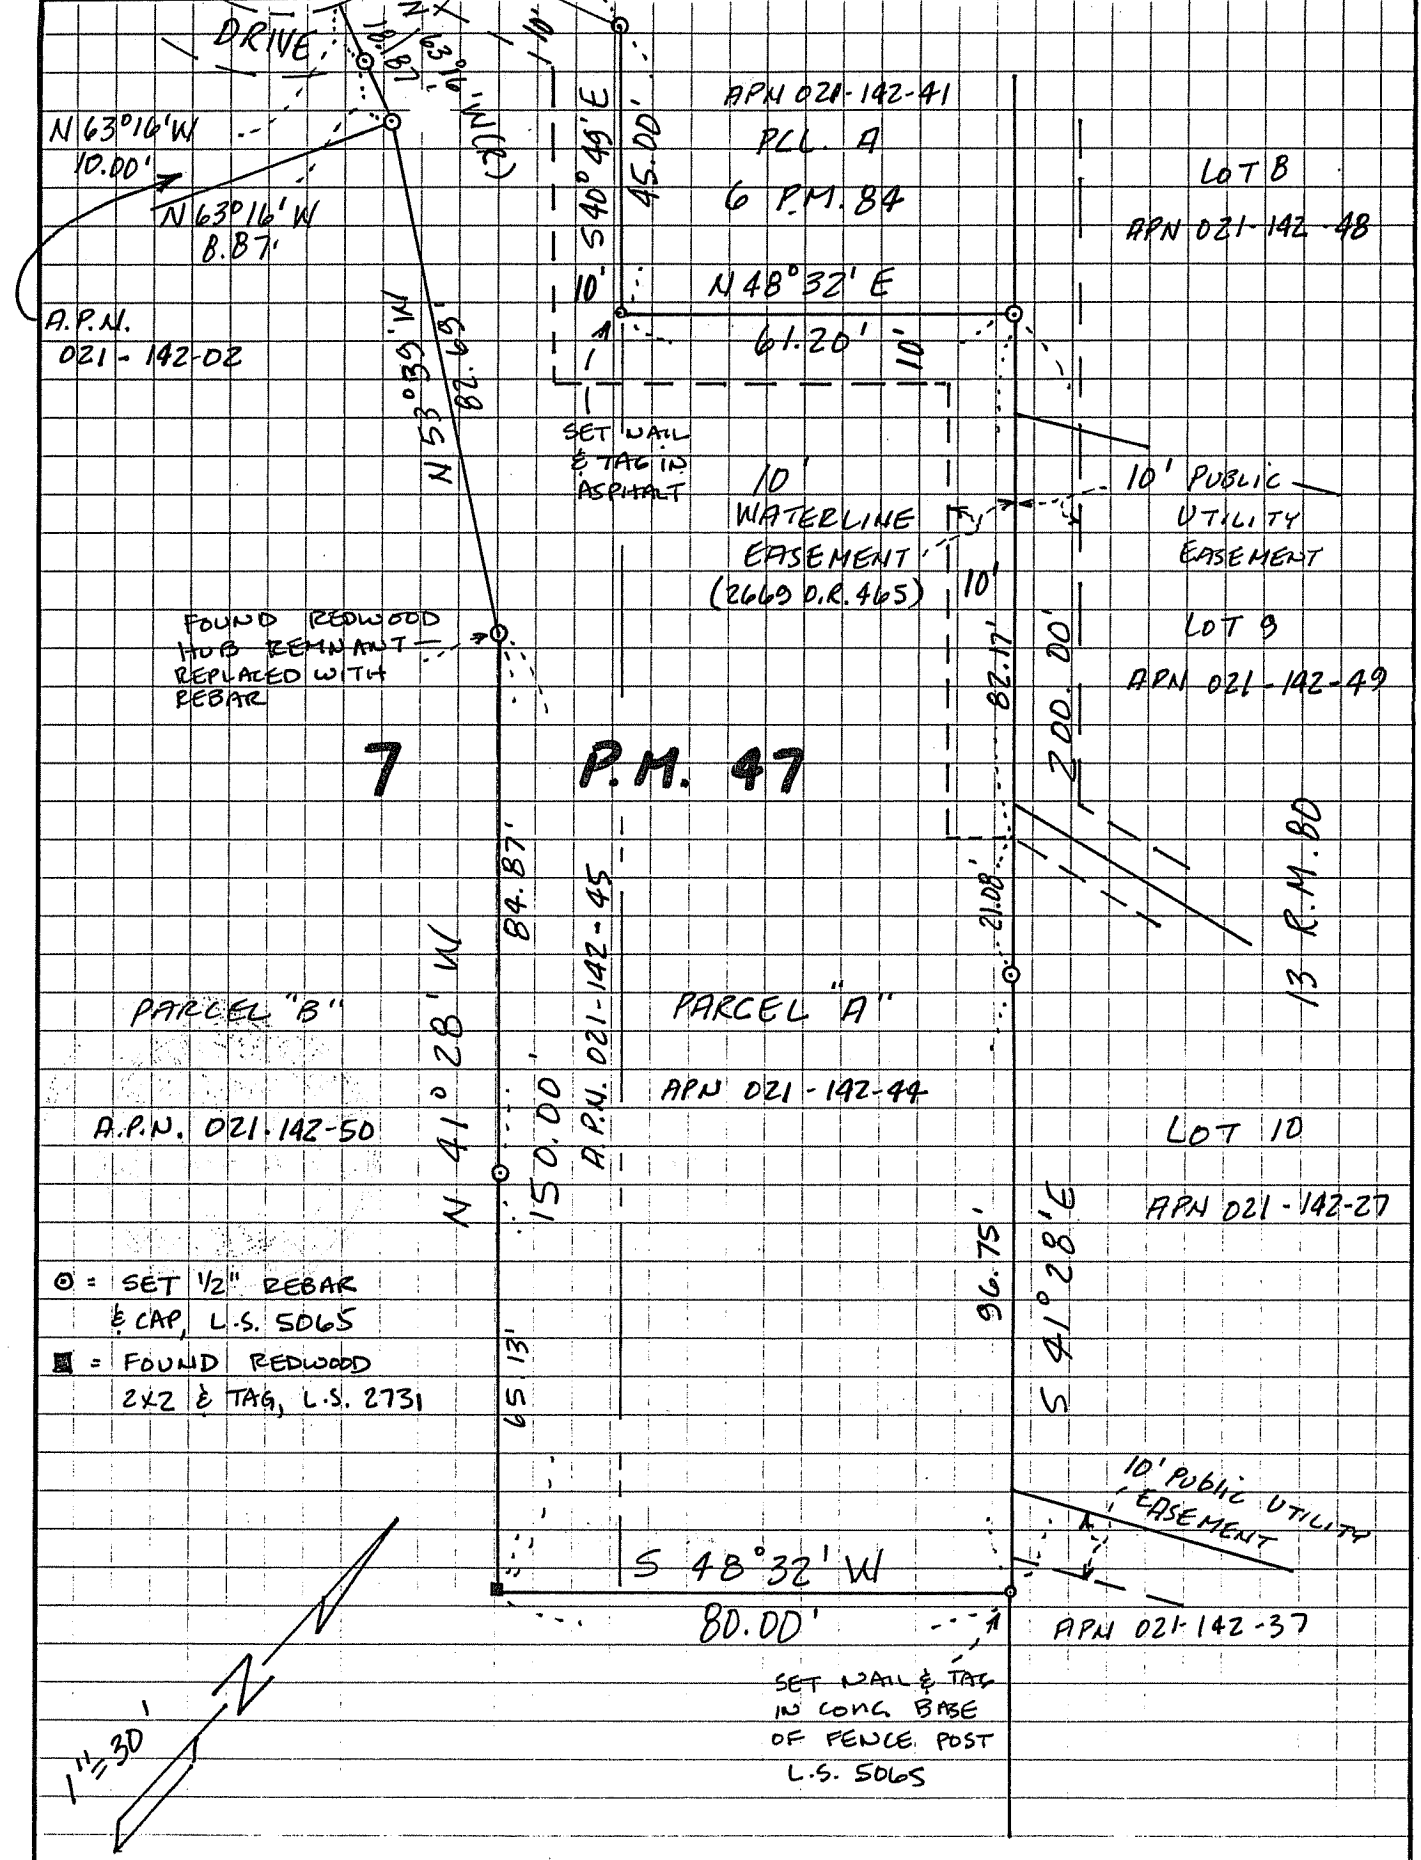 DRIVE
N 63°16' W
10.00'
N 63°16' W
8.87'
10'
S 40°49' E
45.00'
APN 021-142-41
PCL. A
6 P.M. 84
LOT 8
APN 021-142-48
N 48°32' E
61.20'
10'
10'
A.P.N.
021-142-02
N 53°39' W
82.69'
SET NAIL
& TAG IN
ASPHALT
10'
WATERLINE
EASEMENT
(2669 O.R. 465)
10'
10' PUBLIC
UTILITY
EASEMENT
LOT 9
APN 021-142-49
FOUND REDWOOD
HUB REMNANT
REPLACED WITH
REBAR
82.17'
200.00'
7 P.M. 47
84.87'
21.08'
13 R.M. 80
A.P.N. 021-142-45
N 41°28' W
150.00'
PARCEL "B"
A.P.N. 021-142-50
PARCEL "A"
APN 021-142-44
LOT 10
APN 021-142-27
96.75'
S 41°28' E
⊙ = SET 1/2" REBAR
& CAP, L.S. 5065
■ = FOUND REDWOOD
2x2 & TAG, L.S. 2731
65.13'
10' PUBLIC UTILITY
EASEMENT
S 48°32' W
80.00'
APN 021-142-37
SET NAIL & TAG
IN CONC. BASE
OF FENCE POST
L.S. 5065
N
1"=30'